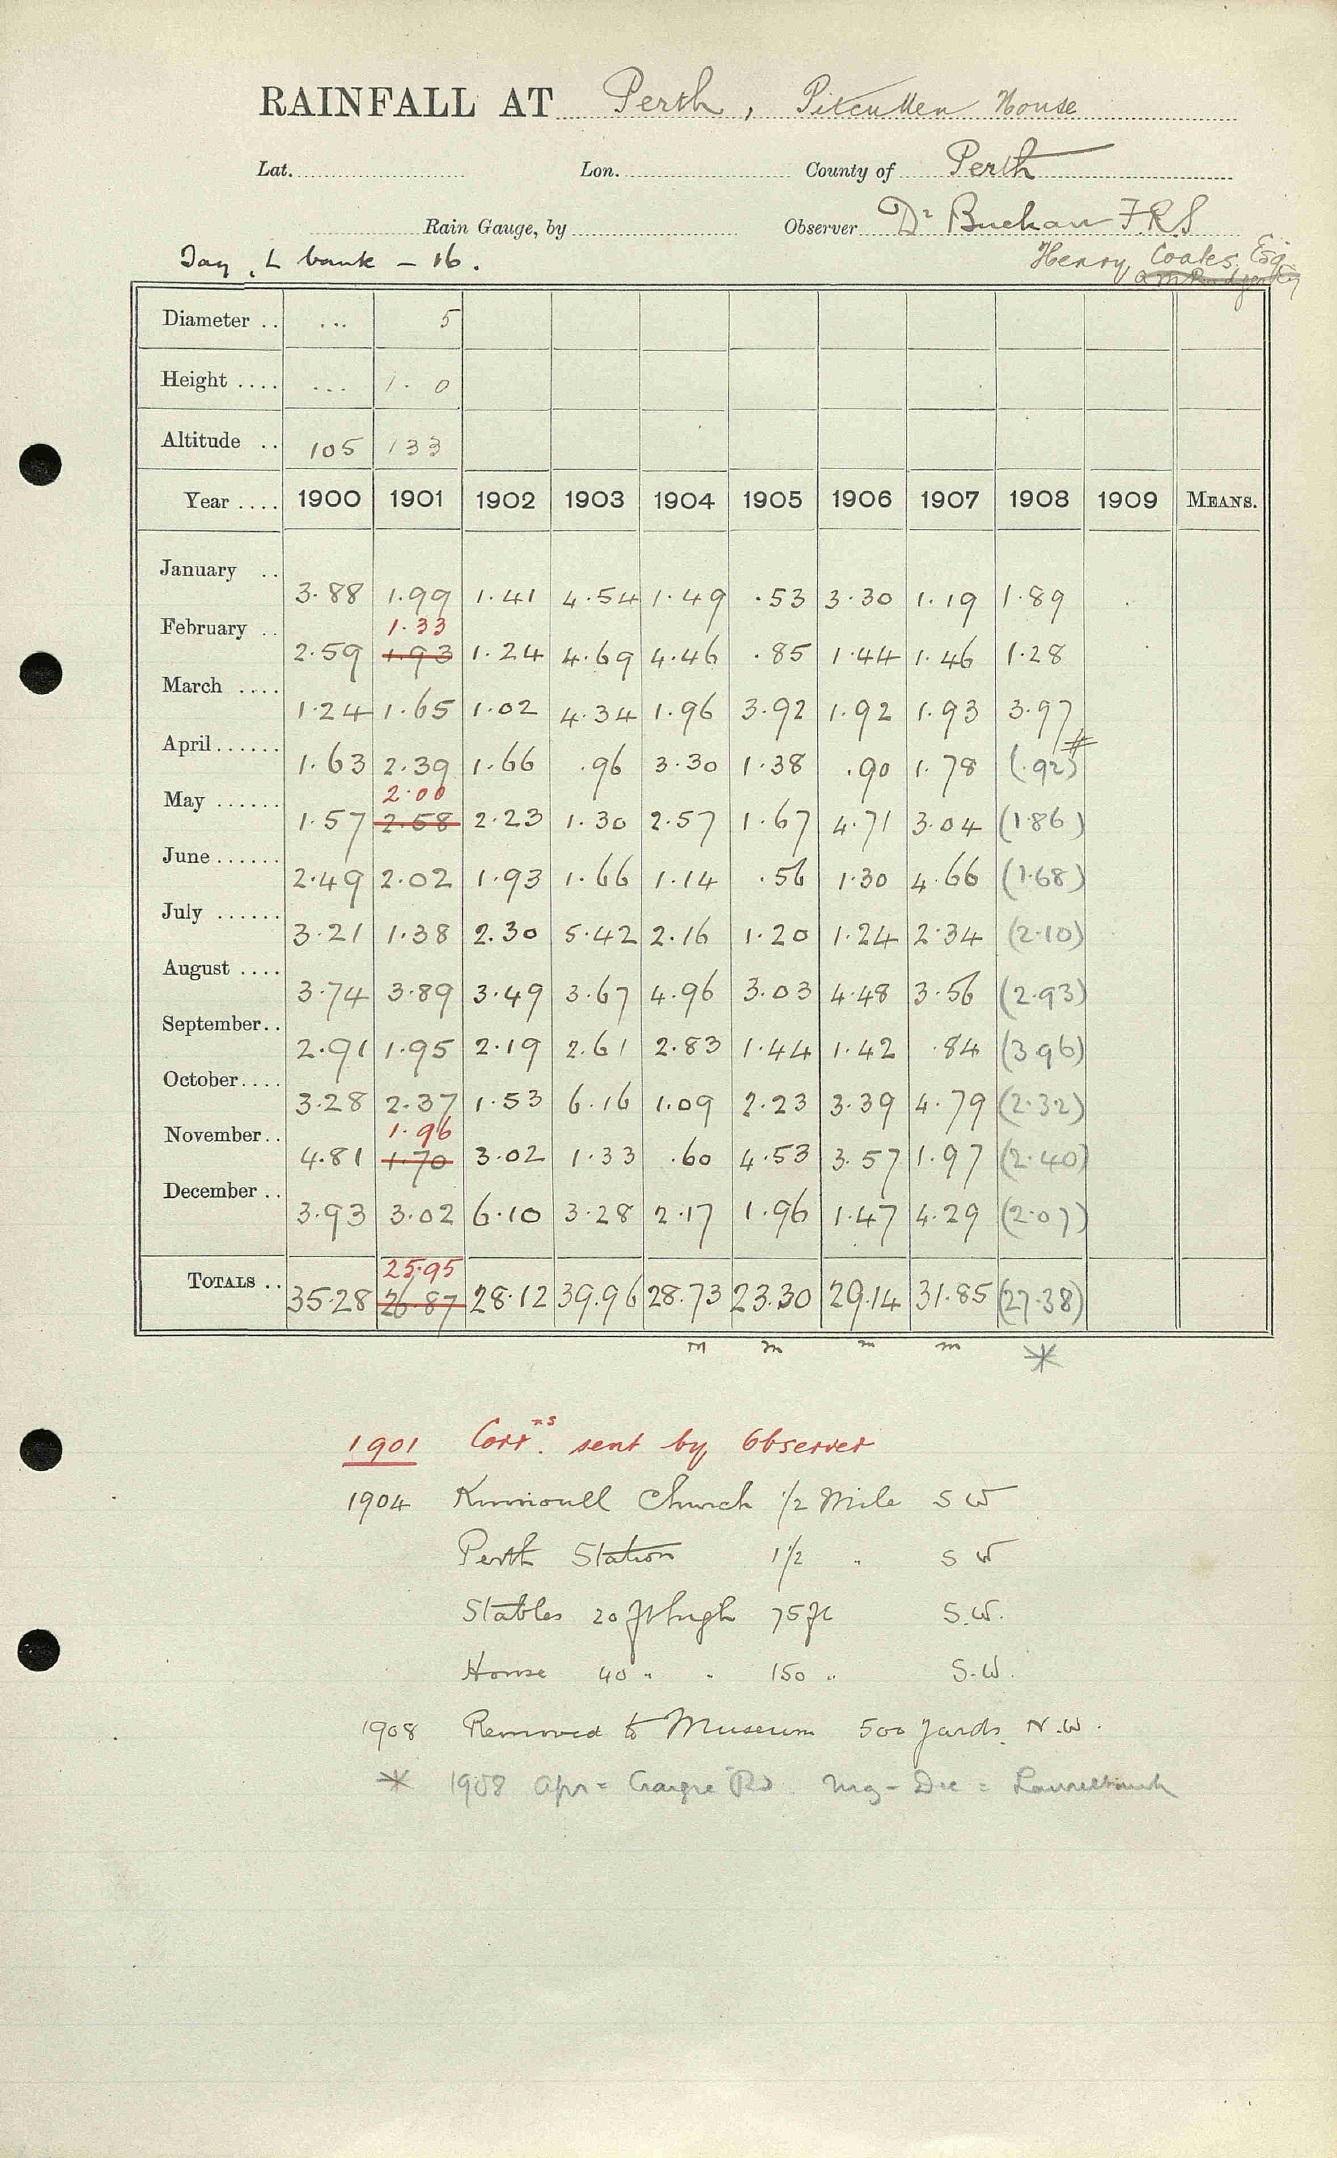 RAINFALL AT Perth, Pitcullen House
Lat. Lon. County of Perth
Rain Gauge, by Observer Dr Buchan F.R.S
Tay, L bank – 16. Henry Coates, Esq.
Diameter .. ... 5
Height .... ... 1. 0
Altitude .. 105 133
Year .... 1900 1901 1902 1903 1904 1905 1906 1907 1908 1909 MEANS.
January .. 3.88 1.99 1.41 4.54 1.49 .53 3.30 1.19 1.89
1.33
February .. 2.59 1.93 1.24 4.69 4.46 .85 1.44 1.46 1.28
March .... 1.24 1.65 1.02 4.34 1.96 3.92 1.92 1.93 3.97
April ...... 1.63 2.39 1.66 .96 3.30 1.38 .90 1.78 (.92) #
2.00
May ...... 1.57 2.58 2.23 1.30 2.57 1.67 4.71 3.04 (1.86)
June ...... 2.49 2.02 1.93 1.66 1.14 .56 1.30 4.66 (1.68)
July ...... 3.21 1.38 2.30 5.42 2.16 1.20 1.24 2.34 (2.10)
August .... 3.74 3.89 3.49 3.67 4.96 3.03 4.48 3.56 (2.93)
September .. 2.91 1.95 2.19 2.61 2.83 1.44 1.42 .84 (3.96)
October .... 3.28 2.37 1.53 6.16 1.09 2.23 3.39 4.79 (2.32)
1.96
November .. 4.81 1.70 3.02 1.33 .60 4.53 3.57 1.97 (2.40)
December .. 3.93 3.02 6.10 3.28 2.17 1.96 1.47 4.29 (2.07)
25.95
TOTALS .. 35.28 26.87 28.12 39.96 28.73 23.30 29.14 31.85 (27.38)
m m m m *
1901 Corrns. sent by Observer
1904 Kinnoull Church 1/2 Mile S W
Perth Station 1 1/2 " S W
Stables 20 ft high 75 ft S.W.
House 40 " " 150 " S.W.
1908 Removed to Museum 500 yards N.W.
* 1908 Apr = Craigie Rd. May – Dec = Laurelbank